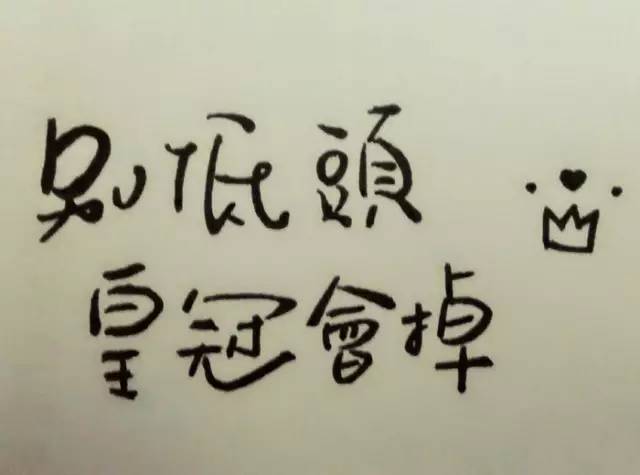 别低頭
皇冠會掉